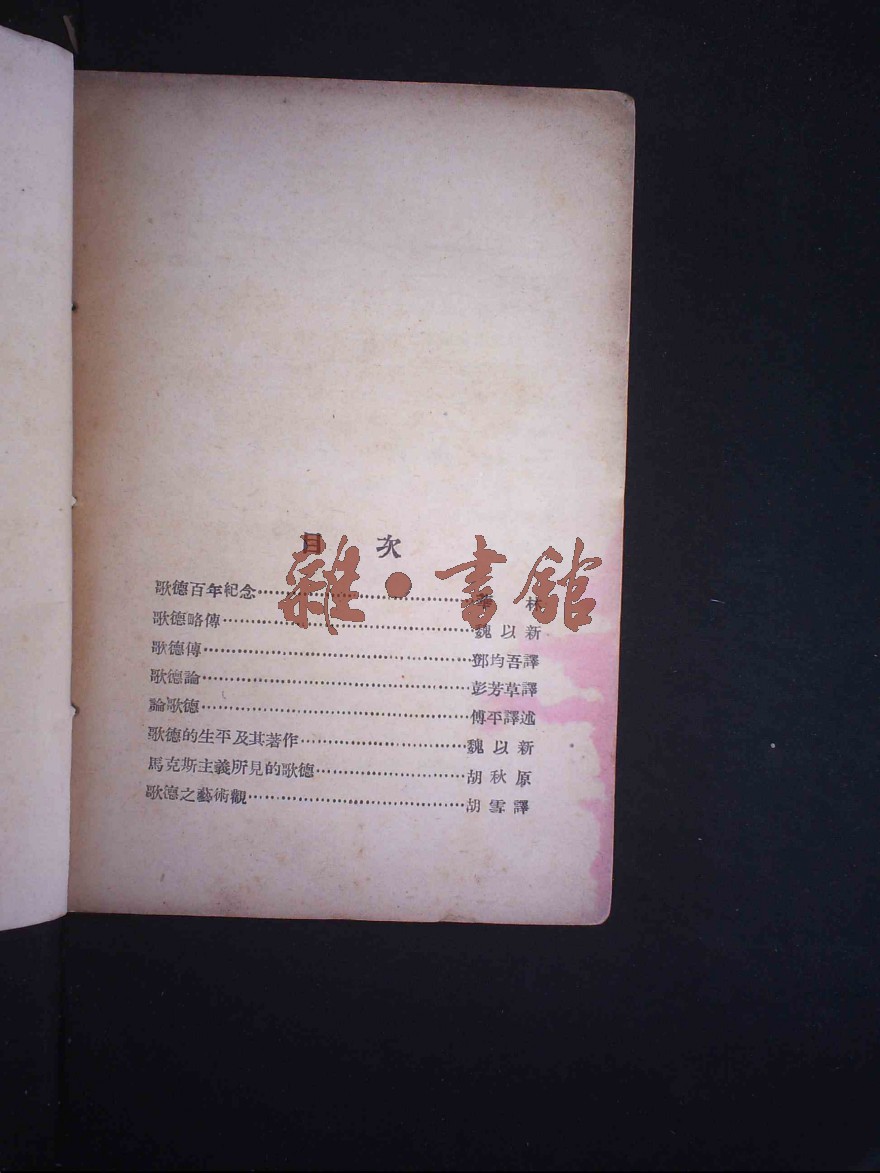 目 次
雜·書館
歌德百年紀念 林
歌德略傳 魏以新
歌德傳 鄧均吾譯
歌德論 彭芳草譯
論歌德 傅平譯述
歌德的生平及其著作 魏以新
馬克斯主義所見的歌德 胡秋原
歌德之藝術觀 胡雪譯